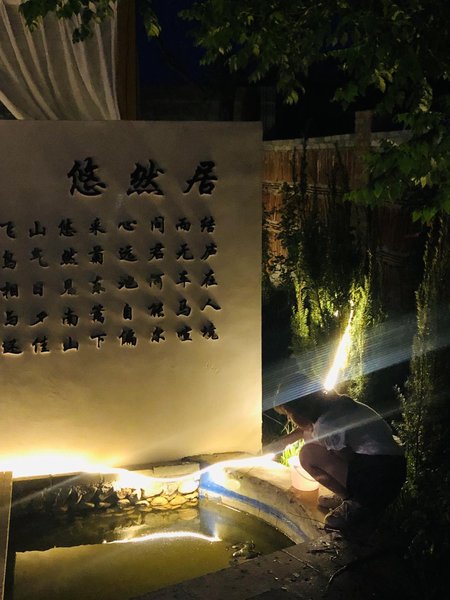 悠然居
结庐在人境
而无车马喧
问君何能尔
心远地自偏
采菊东篱下
悠然见南山
山气日夕佳
飞鸟相与还